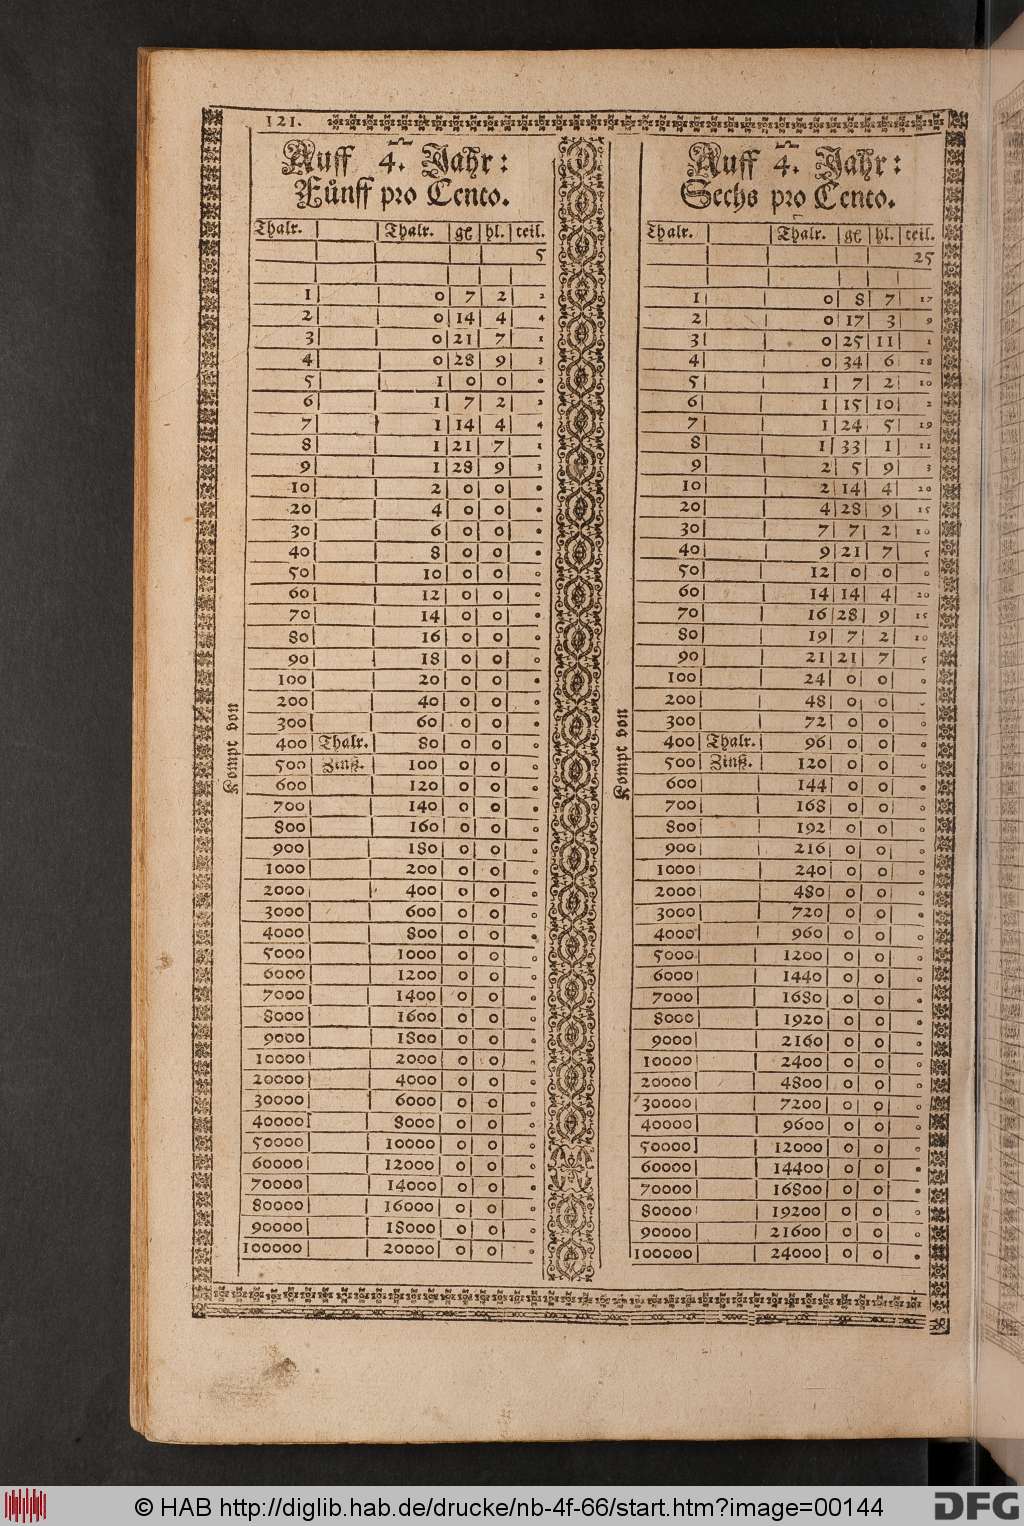 121.
Auff 4. Jahr:
Fünff pro Cento.
Thalr. Thalr. gł hl. teil.
5
1 0 7 2 2
2 0 14 4 4
3 0 21 7 1
4 0 28 9 3
5 1 0 0 0
6 1 7 2 2
7 1 14 4 4
8 1 21 7 1
9 1 28 9 3
10 2 0 0 0
20 4 0 0 0
30 6 0 0 0
40 8 0 0 0
50 10 0 0 0
60 12 0 0 0
70 14 0 0 0
80 16 0 0 0
90 18 0 0 0
100 20 0 0 0
200 40 0 0 0
300 60 0 0 0
400 Thalr. 80 0 0 0
500 Zinß. 100 0 0 0
600 120 0 0 0
700 140 0 0 0
800 160 0 0 0
900 180 0 0 0
1000 200 0 0 0
2000 400 0 0 0
3000 600 0 0 0
4000 800 0 0 0
5000 1000 0 0 0
6000 1200 0 0 0
7000 1400 0 0 0
8000 1600 0 0 0
9000 1800 0 0 0
10000 2000 0 0 0
20000 4000 0 0 0
30000 6000 0 0 0
40000 8000 0 0 0
50000 10000 0 0 0
60000 12000 0 0 0
70000 14000 0 0 0
80000 16000 0 0 0
90000 18000 0 0 0
100000 20000 0 0 0
Kompt von
Auff 4. Jahr:
Sechs pro Cento.
Thalr. Thalr. gł hl. teil.
25
1 0 8 7 17
2 0 17 3 9
3 0 25 11 1
4 0 34 6 18
5 1 7 2 10
6 1 15 10 2
7 1 24 5 19
8 1 33 1 11
9 2 5 9 3
10 2 14 4 20
20 4 28 9 15
30 7 7 2 10
40 9 21 7 5
50 12 0 0 0
60 14 14 4 20
70 16 28 9 15
80 19 7 2 10
90 21 21 7 5
100 24 0 0 0
200 48 0 0 0
300 72 0 0 0
400 Thalr. 96 0 0 0
500 Zinß. 120 0 0 0
600 144 0 0 0
700 168 0 0 0
800 192 0 0 0
900 216 0 0 0
1000 240 0 0 0
2000 480 0 0 0
3000 720 0 0 0
4000 960 0 0 0
5000 1200 0 0 0
6000 1440 0 0 0
7000 1680 0 0 0
8000 1920 0 0 0
9000 2160 0 0 0
10000 2400 0 0 0
20000 4800 0 0 0
30000 7200 0 0 0
40000 9600 0 0 0
50000 12000 0 0 0
60000 14400 0 0 0
70000 16800 0 0 0
80000 19200 0 0 0
90000 21600 0 0 0
100000 24000 0 0 0
Kompt von
© HAB http://diglib.hab.de/drucke/nb-4f-66/start.htm?image=00144
DFG